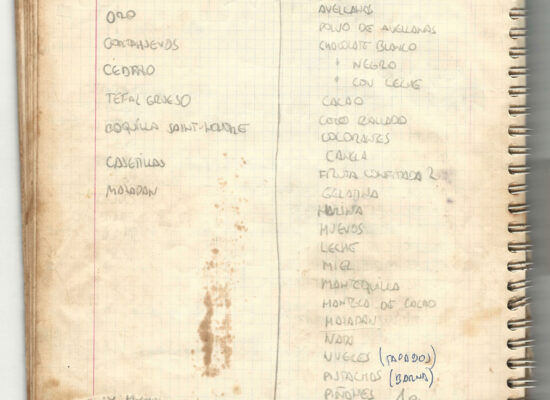 ORO
CORTAHUEVOS
CEDAZO
TEFAL GRUESO
BOQUILLA SAINT-HONORE
CASETILLAS
MAZAPAN
AVELLANAS
POLVO DE AVELLANAS
CHOCOLATE BLANCO
" NEGRO
" CON LECHE
CACAO
COCO RALLADO
COLORANTES
CANELA
FRUTA CONFITADA
GELATINA
HARINA
HUEVOS
LECHE
MIEL
MANTEQUILLA
MANTECA DE CACAO
MAZAPAN
NATA
NUECES (TAPADOS)
PISTACHOS (BARNA)
PIÑONES